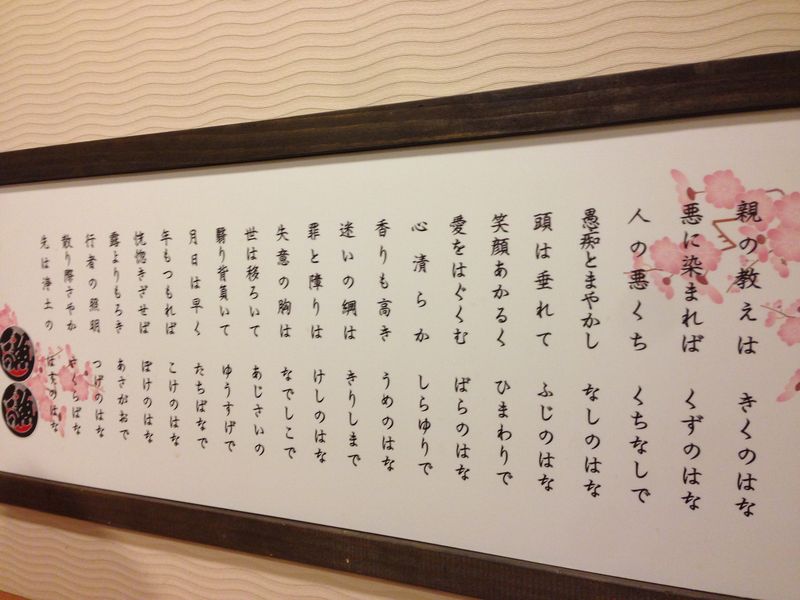 親の教えは　きくのはな
悪に染まれば　くずのはな
人の悪くち　くちなしで
愚痴とまやかし　なしのはな
頭は垂れて　ふじのはな
笑顔あかるく　ひまわりで
愛をはぐくむ　ばらのはな
心清らか　しらゆりで
香りも高き　うめのはな
迷いの綱は　きりしまで
罪と障りは　けしのはな
失意の胸は　なでしこで
世は移ろいて　あじさいの
翳り背負いて　ゆうすげで
月日は早く　たちばなで
年もつもれば　こけのはな
恍惚きざせば　ぼけのはな
露よりもろき　あさがおで
行者の照明　つげのはな
散り際さやか　さくらばな
先は浄土の　はすのはな